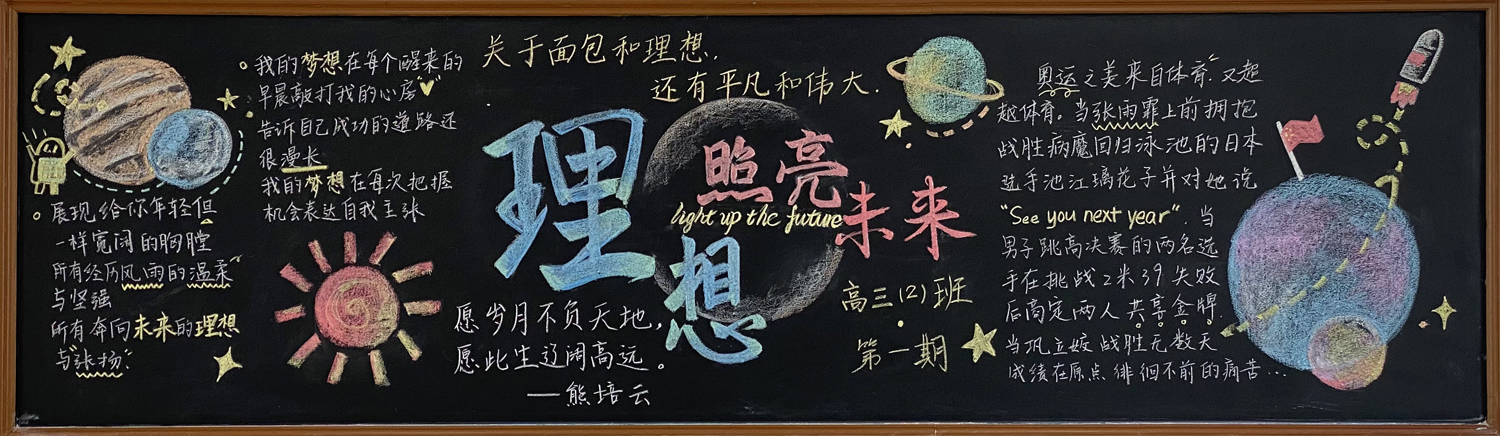 我的梦想在每个醒来的
早晨敲打我的心房
告诉自己成功的道路还
很漫长
我的梦想在每次把握
机会表达自我主张
展现给你年轻但
一样宽阔的胸膛
所有经历风雨的温柔
与坚强
所有奔向未来的理想
与"张扬"
关于面包和理想,
还有平凡和伟大.
理想
照亮
未来
light up the future
愿岁月不负天地,
愿此生辽阔高远。
——熊培云
高三(2)班
第一期
奥运之美来自体育,又超
越体育。当张雨霏上前拥抱
战胜病魔回归泳池的日本
选手池江璃花子并对她说
"See you next year". 当
男子跳高决赛的两名选
手在挑战2米39失败
后商定两人共享金牌.
当巩立姣战胜无数天
成绩在原点徘徊不前的痛苦...